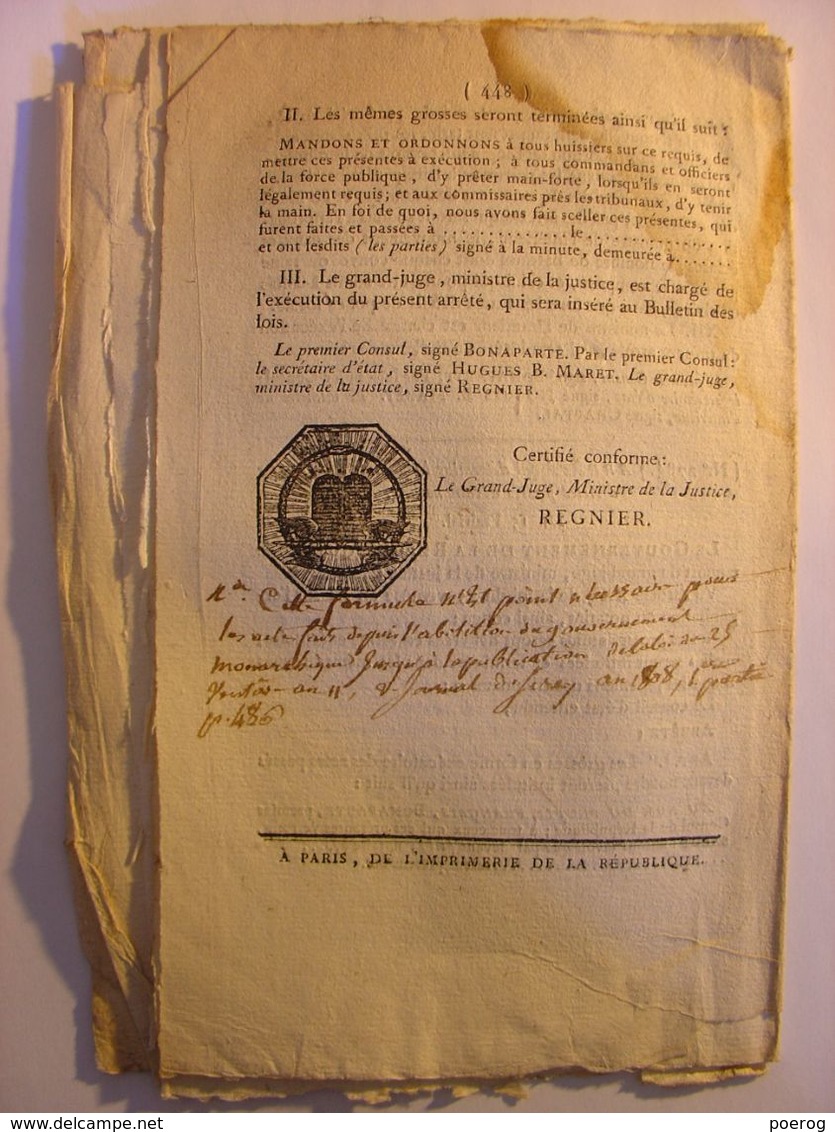 ( 448 )
II. Les mêmes grosses seront terminées ainsi qu'il suit :
MANDONS ET ORDONNONS à tous huissiers sur ce requis, de
mettre ces présentes à exécution ; à tous commandans et officiers
de la force publique, d'y prêter main-forte, lorsqu'ils en seront
légalement requis; et aux commissaires près les tribunaux, d'y tenir
la main. En foi de quoi, nous avons fait sceller ces présentes, qui
furent faites et passées à ..............le..................
et ont lesdits (les parties) signé à la minute, demeurée à.......
III. Le grand-juge, ministre de la justice, est chargé de
l'exécution du présent arrêté, qui sera inséré au Bulletin des
lois.
Le premier Consul, signé BONAPARTE. Par le premier Consul:
le secrétaire d'état, signé HUGUES B. MARET. Le grand-juge,
ministre de la justice, signé REGNIER.
Certifié conforme:
Le Grand-Juge, Ministre de la Justice,
REGNIER.
Cette formule n'est point nécessaire pour
les actes faits depuis l'abolition du gouvernement
monarchique jusqu'à la publication de la loi du 25
Ventôse an 11, V. Journal de Sirey an 1808, 1ère partie
p. 486
À PARIS, DE L'IMPRIMERIE DE LA RÉPUBLIQUE.
delcampe.net
poerog